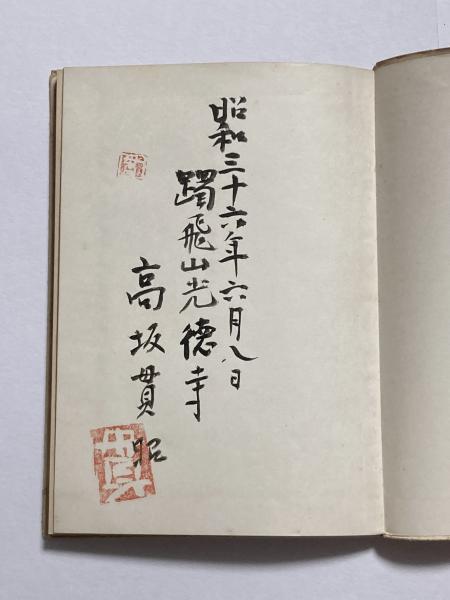 昭和三十六年六月八日
躅飛山光徳寺
高坂貫昭